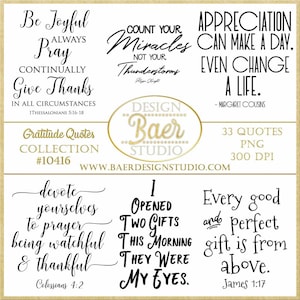 Be Joyful
ALWAYS
Pray
CONTINUALLY
Give Thanks
IN ALL CIRCUMSTANCES
1 Thessalonians 5:16-18
COUNT YOUR
Miracles
NOT YOUR
Thunderstorms
APPRECIATION
CAN MAKE A DAY,
EVEN CHANGE
A LIFE.
- MARGARET COUSINS
Gratitude Quotes
COLLECTION
#10416
DESIGN
Baer
STUDIO
33 QUOTES
PNG
300 DPI
WWW.BAERDESIGNSTUDIO.COM
devote
yourselves
to prayer
being watchful
& thankful
Colossians 4:2
I
OPENED
TWO GIFTS
THIS MORNING
THEY WERE
MY EYES.
Every good
and perfect
gift is from
above.
James 1:17